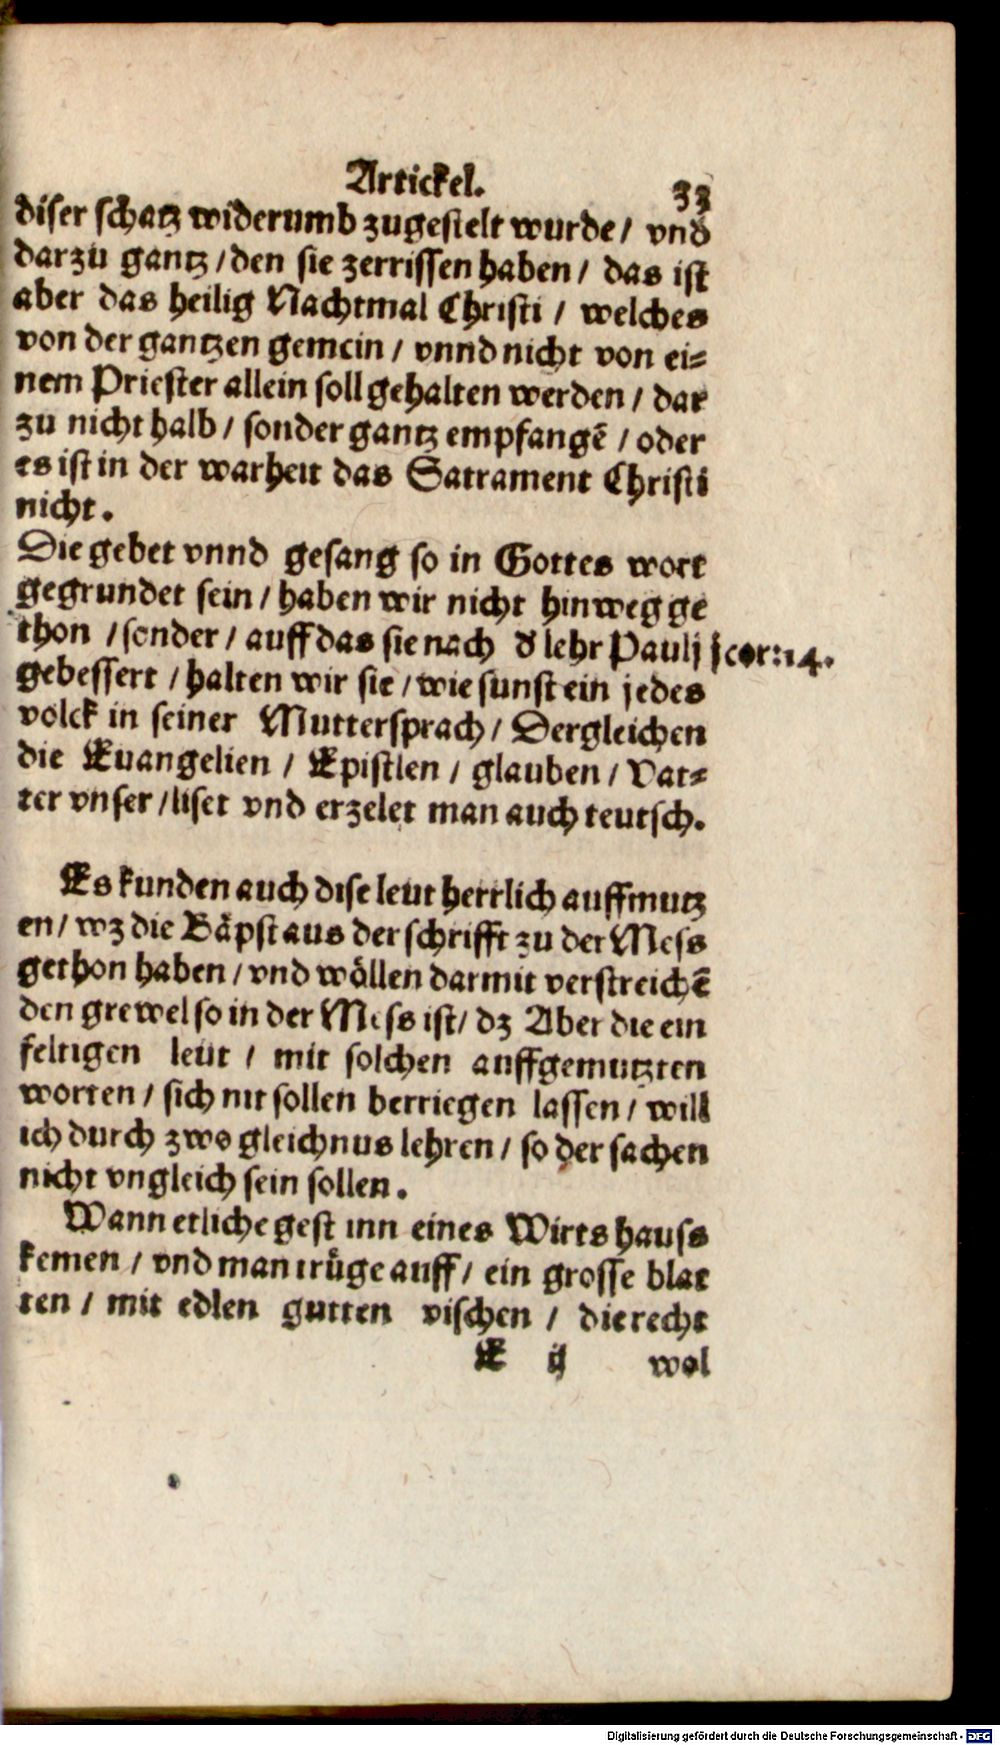 Artickel. 33
diser schatz widerumb zugestelt wurde / vnd
darzu gantz / den sie zerrissen haben / das ist
aber das heilig Nachtmal Christi / welches
von der gantzen gemein / vnnd nicht von ei⸗
nem Priester allein soll gehalten werden / dar
zu nicht halb / sonder gantz empfangē / oder
es ist in der warheit das Sacrament Christi
nicht.
Die gebet vnnd gesang so in Gottes wort
gegrundet sein / haben wir nicht hinweg ge
thon / sonder / auff das sie nach d' lehr Paulj jcor:14.
gebessert / halten wir sie / wie sunst ein jedes
volck in seiner Muttersprach / Dergleichen
die Euangelien / Epistlen / glauben / Vat⸗
ter vnser / liset vnd erzelet man auch teutsch.
Es kunden auch dise leut herrlich auffmutz
en / wz die Bäpst aus der schrifft zu der Mess
gethon haben / vnd wöllen darmit verstreichē
den grewel so in der Mess ist / dz Aber die ein
feltigen leüt / mit solchen auffgemutzten
worten / sich nit sollen betriegen lassen / will
ich durch zwo gleichnus lehren / so der sachen
nicht vngleich sein sollen.
Wann etliche gest inn eines Wirts hauss
kemen / vnd man trüge auff / ein grosse blat
ten / mit edlen gutten vischen / die recht
E ij wol
Digitalisierung gefördert durch die Deutsche Forschungsgemeinschaft - DFG